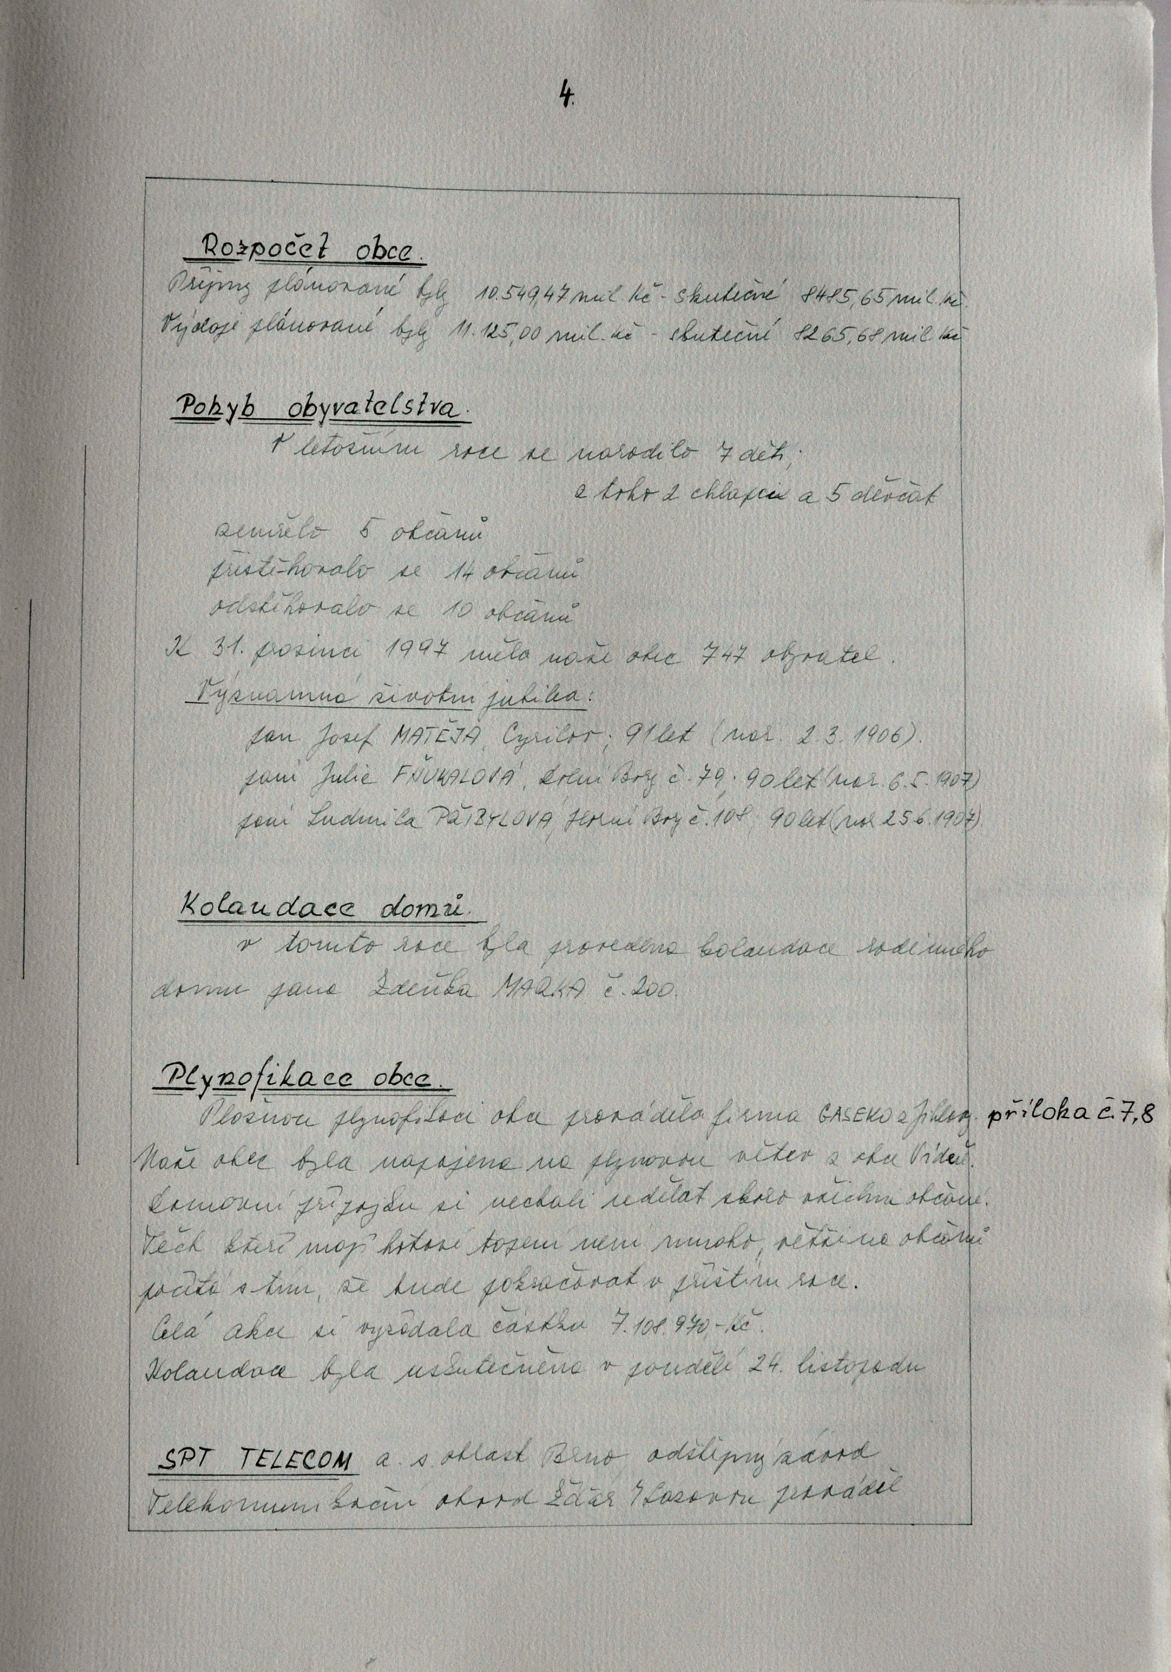 4.
Rozpočet obce.
Příjmy plánované byly 10.549,47 mil. Kč - skutečné 8485,65 mil. Kč.
Výdaje plánované byly 11.125,00 mil. Kč - skutečné 8265,68 mil. Kč
Pohyb obyvatelstva.
V letošním roce se narodilo 7 dětí,
z toho 2 chlapci a 5 děvčat
zemřelo 5 občanů
přistěhovalo se 14 občanů
odstěhovalo se 10 občanů
K 31. prosinci 1997 měla naše obec 747 obyvatel.
Významná životní jubilea:
pan Josef MATĚJA, Cyrilov; 91 let (nar. 2.3.1906).
paní Julie FŇUKALOVÁ, Dolní Bory č. 79; 90 let (nar. 6.5.1907)
paní Ludmila PŘIBYLOVÁ, Horní Bory č. 108, 90 let (nar 25.6.1907).
Kolaudace domů.
v tomto roce byla provedena kolaudace rodinného
domu pana Zdeňka MARKA č. 200.
Plynofikace obce.
Plošnou plynofikaci obce prováděla firma GASEKO z Jihlavy. příloha č. 7,8
Naše obec byla napojena na plynovou větev z obce Vídeň.
Domovní přípojku si nechali udělat skoro všichni občané.
Těch kteří mají hotové topení není mnoho, většina občanů
počítá s tím, že bude pokračovat v příštím roce.
Celá akce si vyžádala částku 7.108.970,-Kč.
Kolaudace byla uskutečněna v pondělí 24. listopadu
SPT TELECOM a. s. oblast Brno, odštěpný závod
Telekomunikační obvod Žďár n/Sázavou prováděl